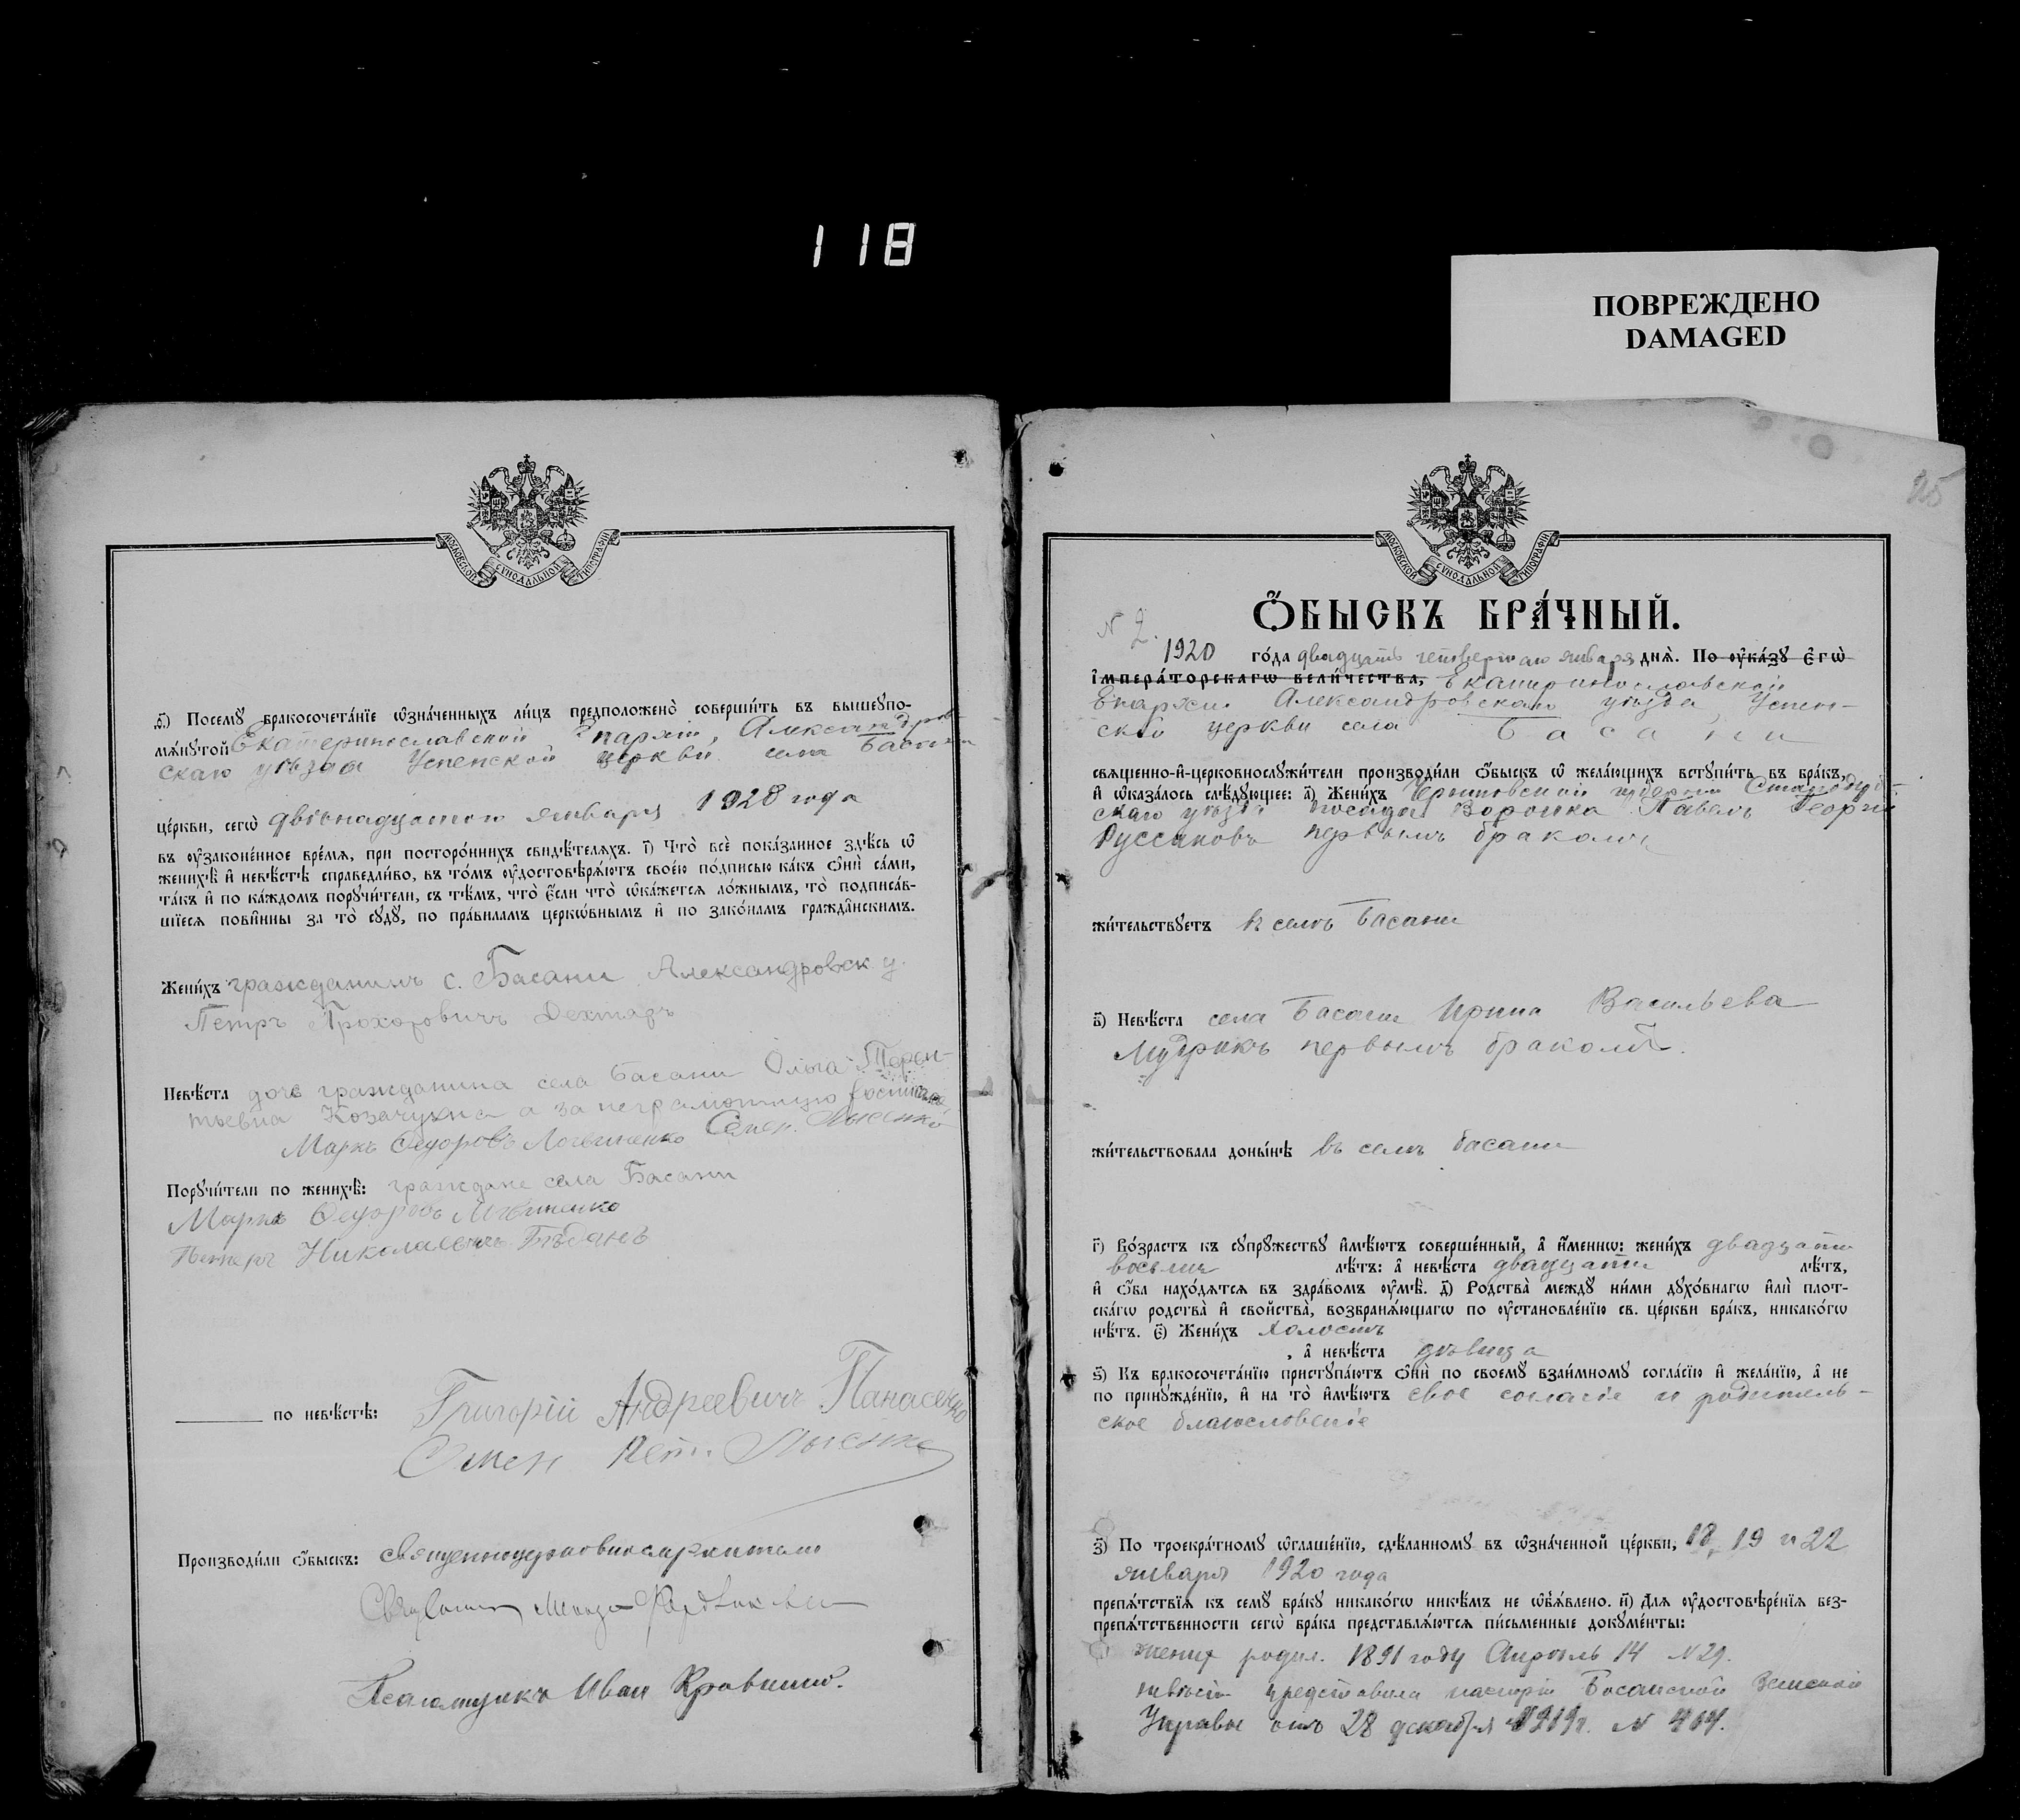 118
ПОВРЕЖДЕНО
DAMAGED
МОСКОВСКОЙ СѴНОДАЛЬНОЙ ТИПОГРАФІИ
ѳ҃) Посемꙋ̀ бракосочета́нїе ѡ҆зна́ченныхъ ли́цъ предположено̀ соверши́ть въ вышеꙋпо-
мѧ́нꙋтой Екатеринославской Епархіи, Александров
скаго уѣзда Успенской церкви села Басани
це́ркви, сегѡ̀ двѣнадцатого января 1920 года
въ ᲂу҆зако́ненное вре́мѧ, при посторо́ннихъ свидѣ́телѧхъ. і҃) Что̀ всѐ пока́занное здѣ́сь ѡ҆
женихѣ̀ и҆ невѣ́стѣ справедли́во, въ то́мъ ᲂу҆достовѣрѧ́ютъ свое́ю по́дписью ка́къ ѻ҆нѝ са́ми,
та́къ и҆ по ка́ждомъ порꙋчи́тели, съ тѣ́мъ, что̀ є҆́сли что̀ ѡ҆ка́жетсѧ ло́жнымъ, то̀ подписа́в-
шїесѧ пови́нны за то̀ сꙋдꙋ̀, по пра́виламъ церко́внымъ и҆ по зако́намъ гражда́нскимъ.
Жени́хъ гражданинъ с. Басани Александровск. у.
Петръ Прохоровичъ Дехтяръ
Невѣ́ста дочь гражданина села Басани Ольга Терен-
тьевна Козачухна а за неграмотную
Маркъ Федоровъ Логвиненко Семен. Лысенко
Порꙋчи́тели по женихѣ̀: граждане села Басани
Маркъ Федоровъ Логвиненко
Петръ Николаевичъ
по невѣ́стѣ: Григорій Андреевичъ Панасенко
Семен Пет. Лысенко
Производи́ли ѻ҆́быскъ: священноцерковнослужители
Священник
Псаломщикъ Иван
25
МОСКОВСКОЙ СѴНОДАЛЬНОЙ ТИПОГРАФІИ
Ѻ҆́БЫСКЪ БРА́ЧНЫЙ.
N 2.
1920 го́да двадцать четвертаго января днѧ̀. По ᲂу҆ка́зꙋ Є҆гѡ̀
І҆мпера́торскагѡ вели́чества, Екатеринославской
Епархіи Александровскаго уѣзда, Успен-
ской церкви села Басани
свѧщенно-и҆-церковнослꙋжи́тели производи́ли ѻ҆́быскъ ѡ҆ жела́ющихъ встꙋпи́ть въ бра́къ,
и҆ ѡ҆каза́лось слѣ́дꙋющее: а҃) Жени́хъ Черниговской губерніи Стародуб-
скаго уѣзда посада Воронка Павелъ Георгіе
Руссаковъ первымъ бракомъ
жи́тельствꙋетъ въ селѣ Басани
в҃) Невѣ́ста села Басани Ирина Васильева
Мудрикъ первымъ бракомъ.
жи́тельствовала доны́нѣ въ селѣ Басани
г҃) Во́зрастъ къ сꙋпрꙋ́жествꙋ и҆мѣ́ютъ соверше́нный, а҆ и҆́менно: жени́хъ двадцати
восьми лѣ́тъ: а҆ невѣ́ста двадцати лѣ́тъ,
и҆ ѻ҆́ба нахо́дѧтсѧ въ здра́вомъ ᲂу҆мѣ̀. д҃) Родства̀ междꙋ̀ ни́ми дꙋхо́внагѡ и҆лѝ плот-
ска́гѡ родства̀ и҆ сво́йства, возбранѧ́ющагѡ по ᲂу҆становле́нїю св. це́ркви бра́къ, никако́гѡ
нѣ́тъ. є҃) Жени́хъ холостъ
, а҆ невѣ́ста дѣвица
ѕ҃) Къ бракосочета́нїю пристꙋпа́ютъ ѻ҆нѝ по своемꙋ̀ взаи́мномꙋ согла́сїю и҆ жела́нїю, а҆ не
по принꙋжде́нїю, и҆ на то̀ и҆мѣ́ютъ свое согласіе и родитель-
ское благословеніе
з҃) По троекра́тномꙋ ѡ҆глаше́нїю, сдѣ́ланномꙋ въ ѡ҆зна́ченной це́ркви, 18, 19 и 22
января 1920 года
препѧ́тствїѧ къ семꙋ̀ бра́кꙋ никако́гѡ никѣ́мъ не ѡ҆б̾ѧ́влено. и҃) Длѧ ᲂу҆достовѣре́нїѧ без-
препѧ́тственности сегѡ̀ бра́ка представлѧ́ютсѧ пи́сьменные докꙋме́нты:
жених родил. 1891 году Апрѣль 14 N 29.
невѣста представила паспорт Басанской Земской
Управы отъ 28 декабря 1919 г. N 404.